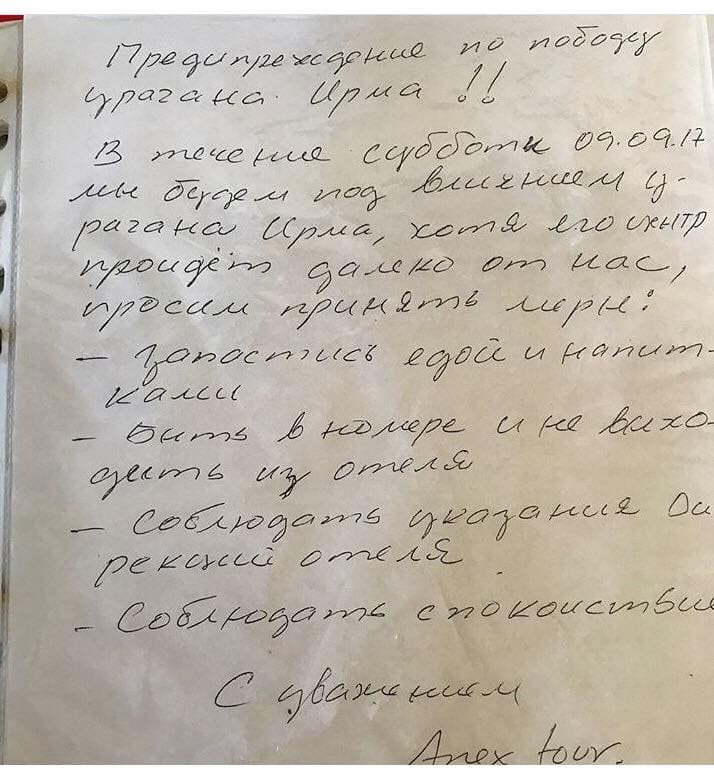 Предипреждение по пободу
урагана. Ирма !!
В течение субботи 09.09.17
мы будем под влиянием у-
рагана Ирма, хотя его центр
пройдёт далеко от нас,
просим принять меры:
- Запастись едой и напит-
ками
- Бить в номере и не вихо-
дить из отеля
- Соблюдать указания Ди
рекций отеля
- Соблюдать спокоиствие
С уважением
Anex tour.